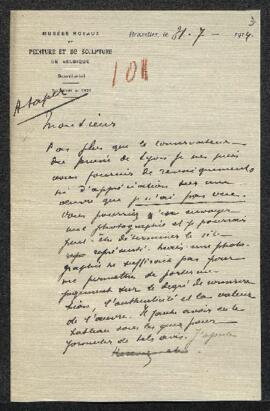 3
MUSÉES ROYAUX
DE
PEINTURE ET DE SCULPTURE
DE BELGIQUE
Secrétariat
Bruxelles, le 31-7-1914
101
A taper
Monsieur
Pas plus que le conservateur
du musée de Lyon je ne puis
vous fournir de renseignements
ni d'appréciation sur une
œuvre que je n'ai pas vue.
Vous pourriez m'en envoyer
une photographie et je pourrais
peut-être déterminer le
représenté. mais une photo-
graphie ne suffirait pas pour
me permettre de porter un
jugement sur le degré de conserva-
tion, l'authenticité et la valeur
de l'œuvre. Il faut avoir eu le
tableau sous les yeux pour
formuler de tels avis. J'ajoute